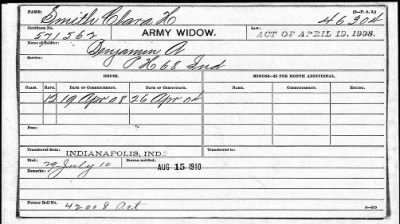 NAME: Smith Clara H (3—P. A. R.) 46304
Certificate No.: 571562 ARMY WIDOW. Law: ACT OF APRIL 19, 1908.
Name of Soldier: Benjamin A.
Service: H 68 Ind
ISSUE. MINORS—$2 PER MONTH ADDITIONAL.
CLASS. RATE. DATE OF COMMENCEMENT. DATE OF CERTIFICATE. COMMENCEMENT. ENDING.
12 19 Apr 08 26 Apr 04
Fee:
Transferred from: INDIANAPOLIS, IND. Transferred to:
Died: 29 July 10 Bureau notified: AUG 15 1910
Remarks:
Former Roll No. 42008 Act